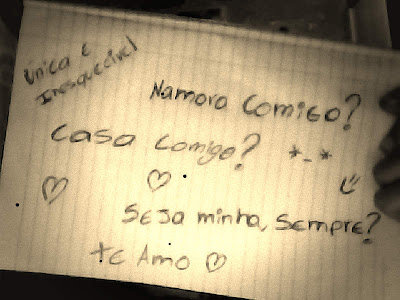 Única e
Inesquecível
Namora comigo?
Casa comigo? *-*
Seja minha, sempre?
te Amo